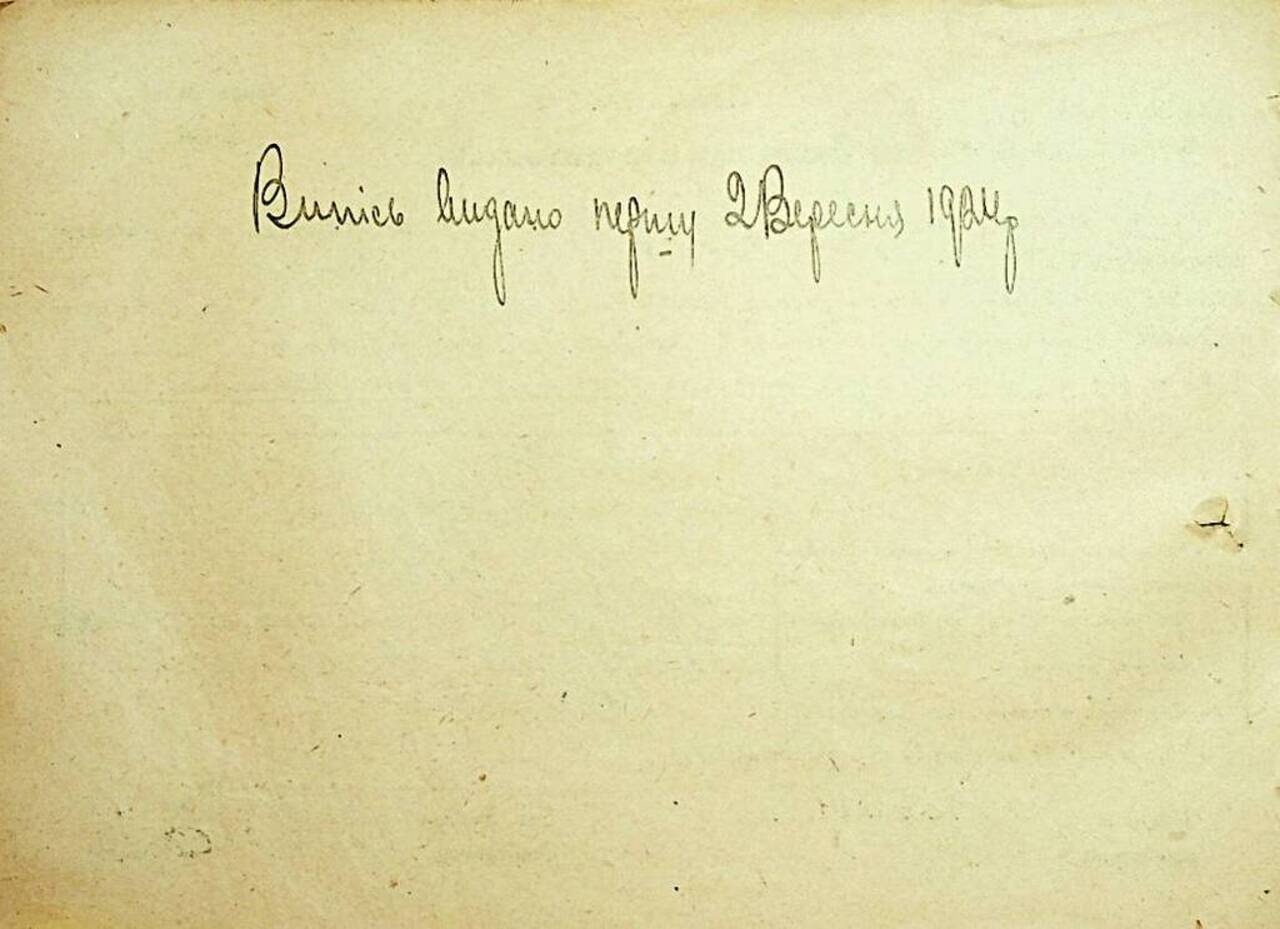 Випісь видано першу 2 Вересня 1924 р